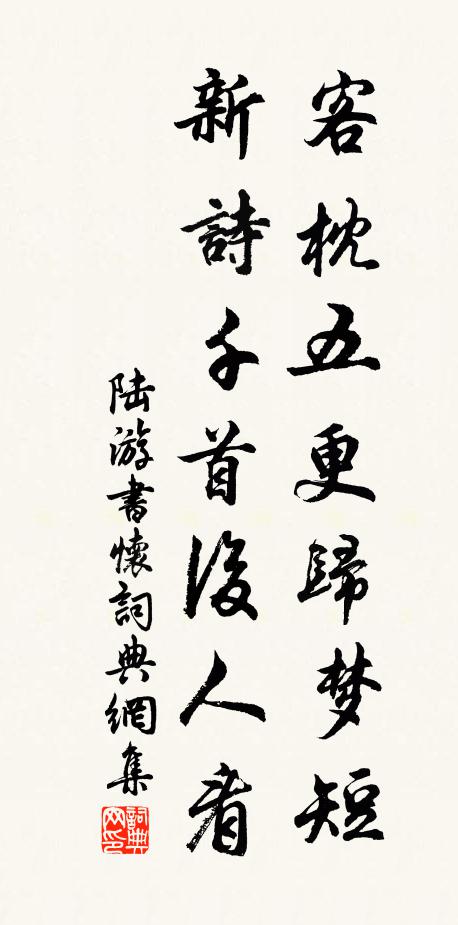 客枕五更歸梦短
新詩千首後人看
陆游書懷詞典網集
詞典
网印